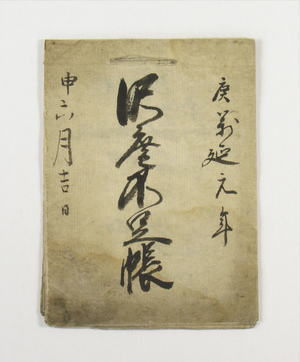 庚萬延元年
不足帳
申六月吉日